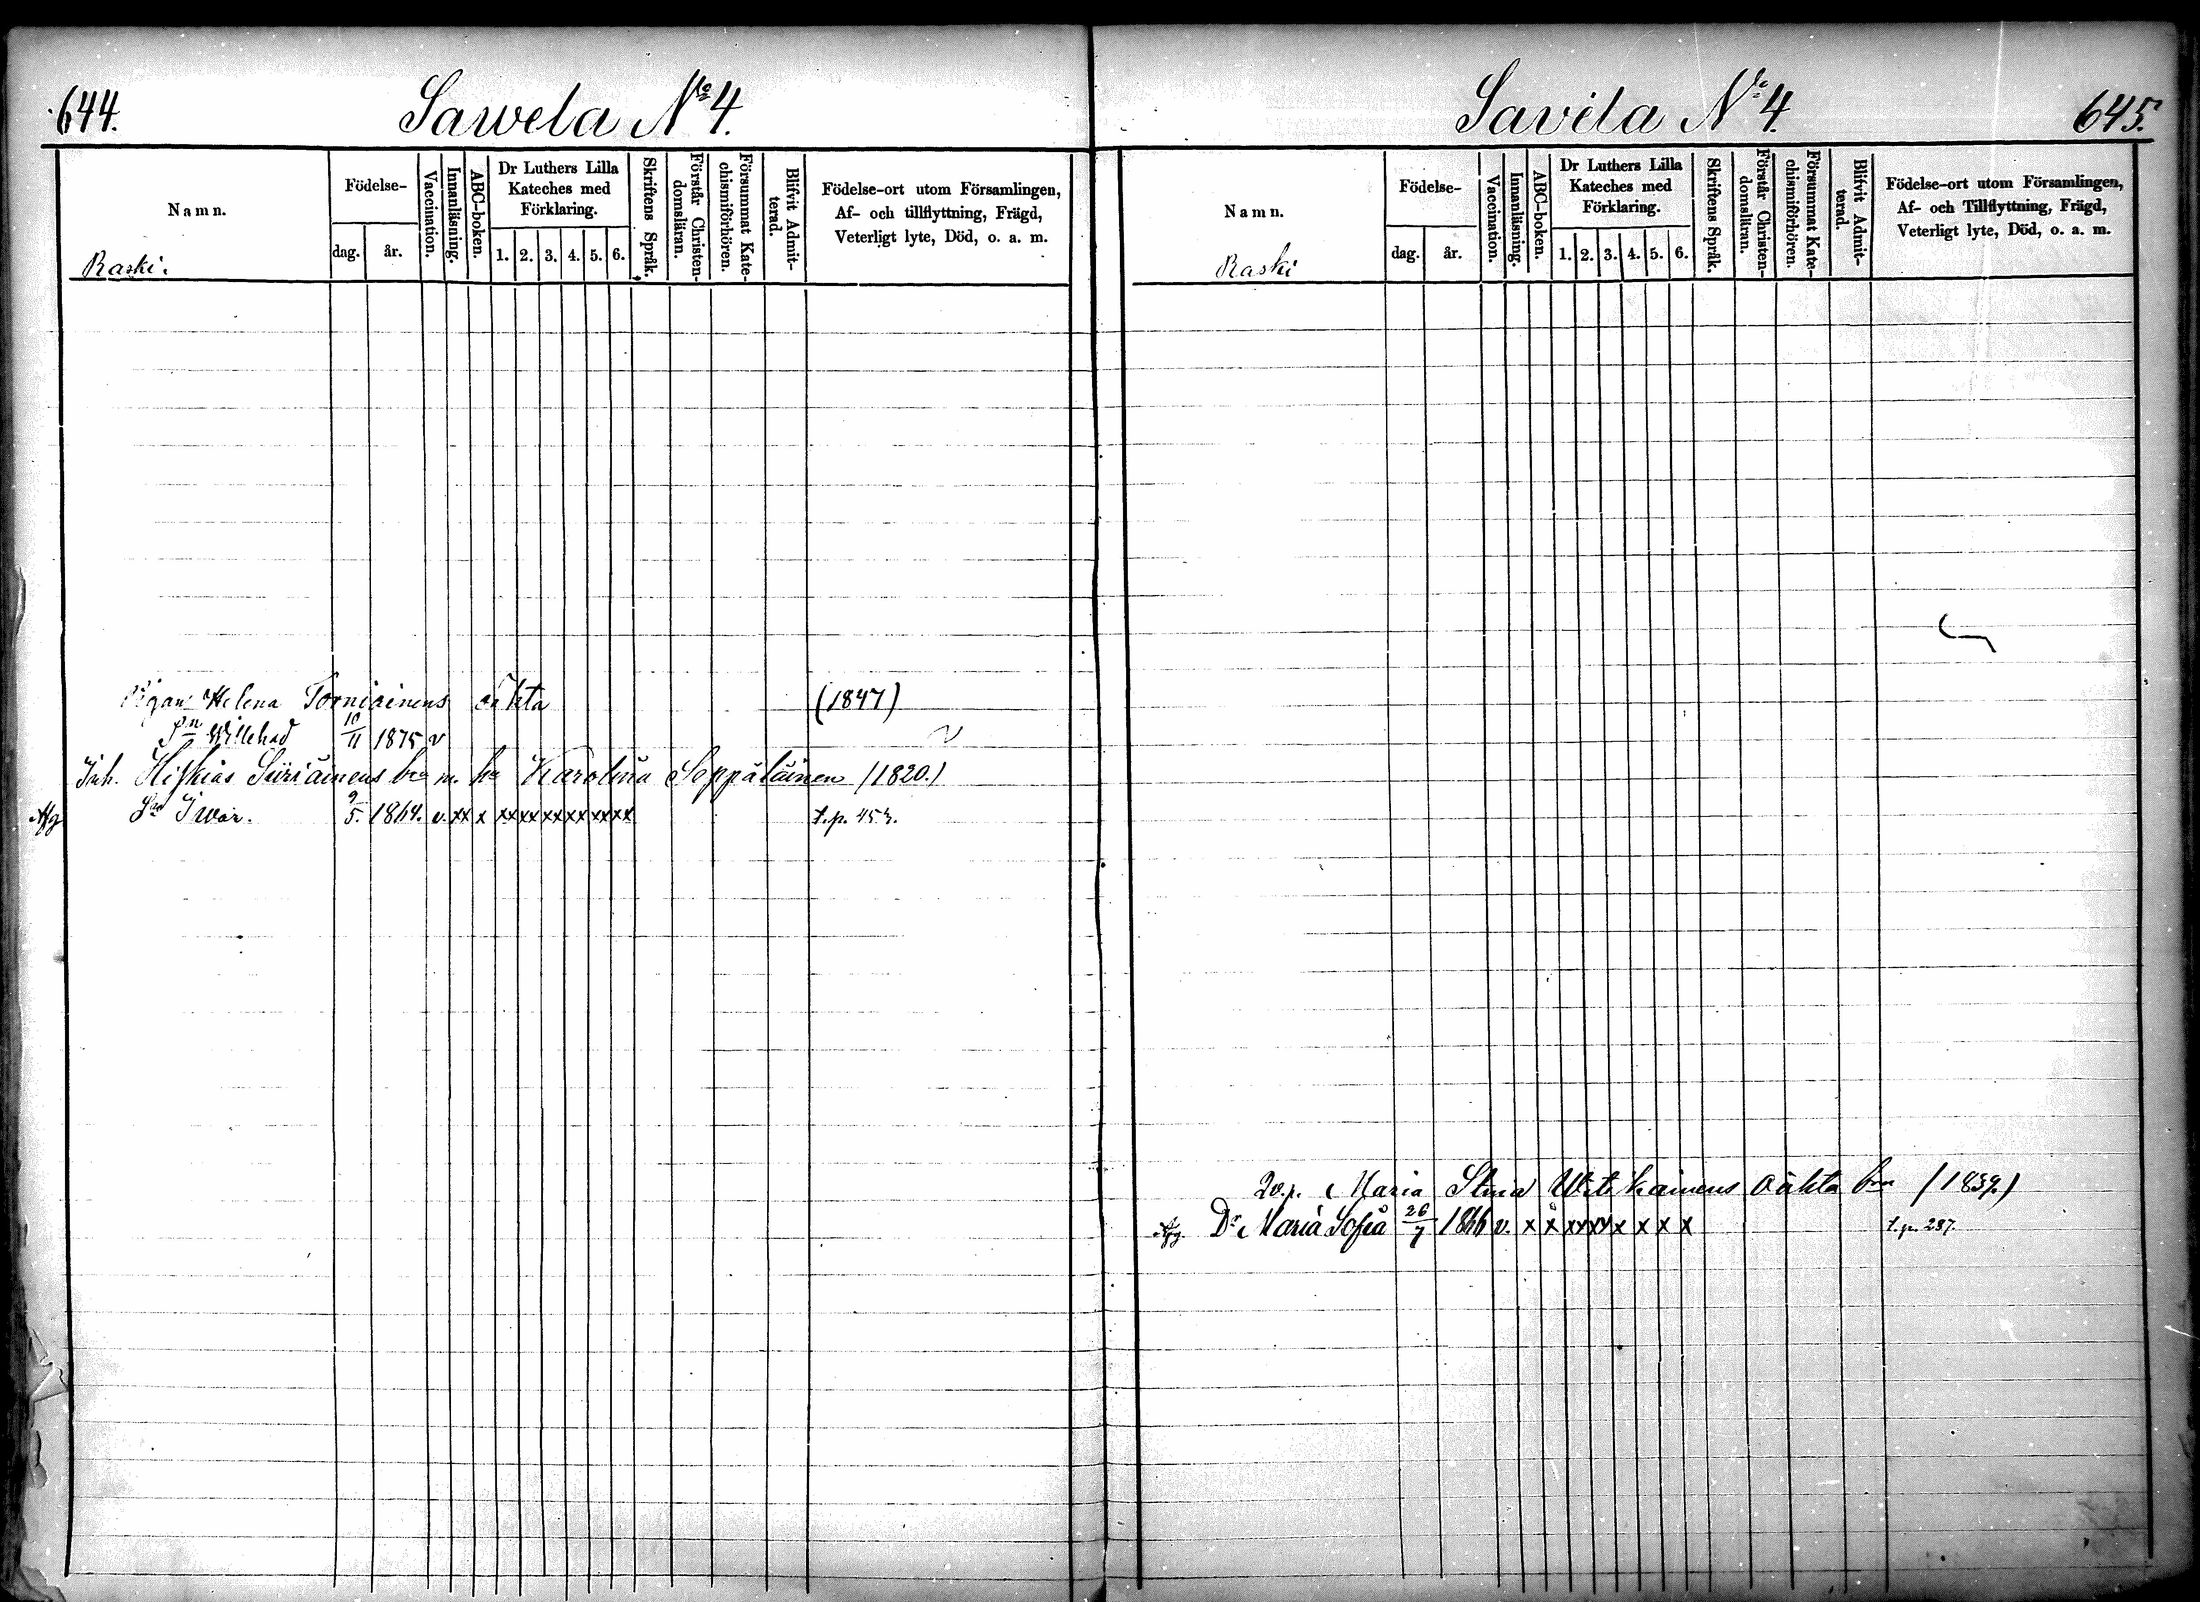 644.
Sawela No 4.
Namn.
Raski.
Födelse-
dag.
år.
Vaccination.
Innanläsning.
ABC-boken.
Dr Luthers Lilla
Kateches med
Förklaring.
1. 2. 3. 4. 5. 6.
Skriftens Språk.
Förstår Christen-
domsläran.
Försummat Kate-
chismiförhören.
Blifvit Admit-
terad.
Födelse-ort utom Församlingen,
Af- och tillflyttning, Frägd,
Veterligt lyte, Död, o. a. m.
Helena Torniainens oäkta (1847)
Sn Willehad 10/11 1875 v
Inh. Hiskias Siiriäinens m. Karolina Seppäläinen (1820.)
Afg Sn Iwar. 9/5. 1864. v. xx x xx xx xx xx xx xx t.p. 453.
Savila No 4.
645.
Namn.
Raski
Födelse-
dag.
år.
Vaccination.
Innanläsning.
ABC-boken.
Dr Luthers Lilla
Kateches med
Förklaring.
1. 2. 3. 4. 5. 6.
Skriftens Språk.
Förstår Christen-
domsläran.
Försummat Kate-
chismiförhören.
Blifvit Admit-
terad.
Födelse-ort utom Församlingen,
Af- och Tillflyttning, Frägd,
Veterligt lyte, Död, o. a. m.
Maria Stina oäkta (1839.)
Afg. Dr Maria Sofia 26/7 1866 v. x x xx xx x x x x t.p. 287.